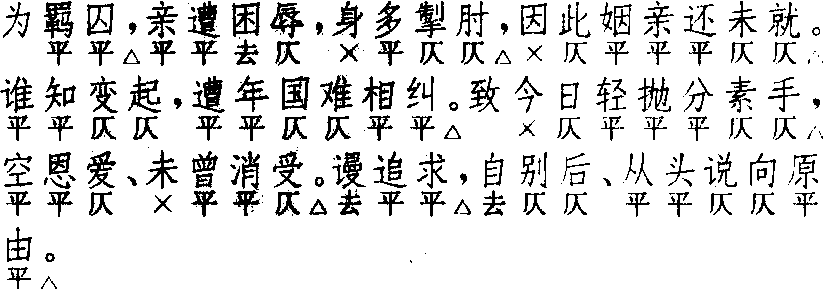 为羁囚，亲遭困辱，身多掣肘，因此姻亲还未就。
平平△平平去仄 ×平仄仄△×仄平平平仄仄△
谁知变起，遭年国难相纠。致今日轻抛分素手，
平平仄仄 平平仄仄平平△ ×仄平平平仄仄△
空恩爱、未曾消受。谩追求，自别后、从头说向原
平平仄 ×平平仄△去平平△去仄仄 平平仄仄平
由。
平△